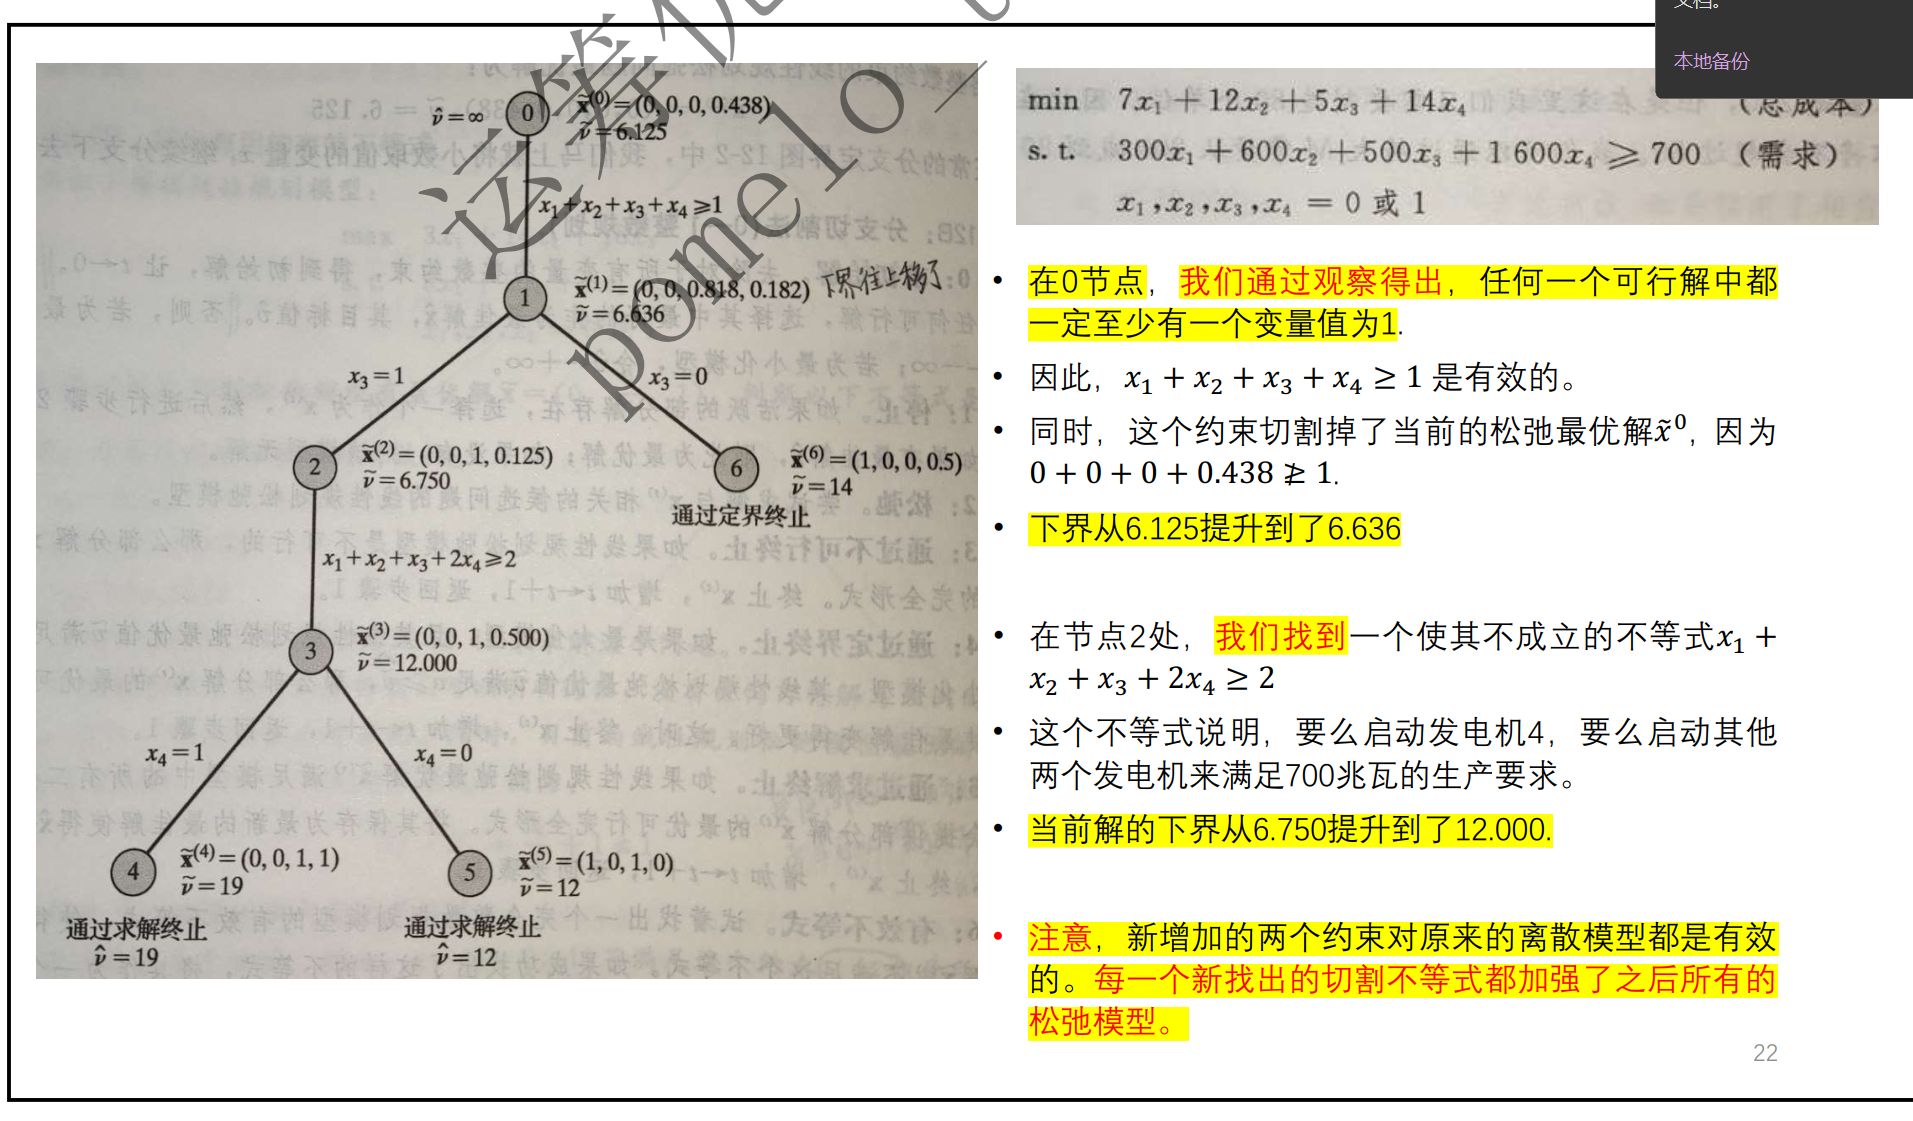 文档。
本地备份
运筹优
pomelo
ν̂=∞
0
x̃⁽⁰⁾=(0, 0, 0, 0.438)
ṽ=6.125
x₁+x₂+x₃+x₄≥1
1
x̃⁽¹⁾=(0, 0, 0.818, 0.182)
下界往上移了
ṽ=6.636
x₃=1
x₃=0
2
x̃⁽²⁾=(0, 0, 1, 0.125)
ṽ=6.750
6
x̃⁽⁶⁾=(1, 0, 0, 0.5)
ṽ=14
通过定界终止
x₁+x₂+x₃+2x₄≥2
3
x̃⁽³⁾=(0, 0, 1, 0.500)
ṽ=12.000
x₄=1
x₄=0
4
x̃⁽⁴⁾=(0, 0, 1, 1)
ṽ=19
5
x̃⁽⁵⁾=(1, 0, 1, 0)
ṽ=12
通过求解终止
ν̂=19
通过求解终止
ν̂=12
min 7x₁+12x₂+5x₃+14x₄ (总成本)
s. t. 300x₁+600x₂+500x₃+1 600x₄⩾700 (需求)
x₁,x₂,x₃,x₄ = 0 或 1
• 在0节点，我们通过观察得出，任何一个可行解中都
一定至少有一个变量值为1.
• 因此，x₁ + x₂ + x₃ + x₄ ≥ 1 是有效的。
• 同时，这个约束切割掉了当前的松弛最优解x̃⁰，因为
0 + 0 + 0 + 0.438 ≱ 1.
• 下界从6.125提升到了6.636
• 在节点2处，我们找到一个使其不成立的不等式x₁ +
x₂ + x₃ + 2x₄ ≥ 2
• 这个不等式说明，要么启动发电机4，要么启动其他
两个发电机来满足700兆瓦的生产要求。
• 当前解的下界从6.750提升到了12.000.
• 注意，新增加的两个约束对原来的离散模型都是有效
的。每一个新找出的切割不等式都加强了之后所有的
松弛模型。
22